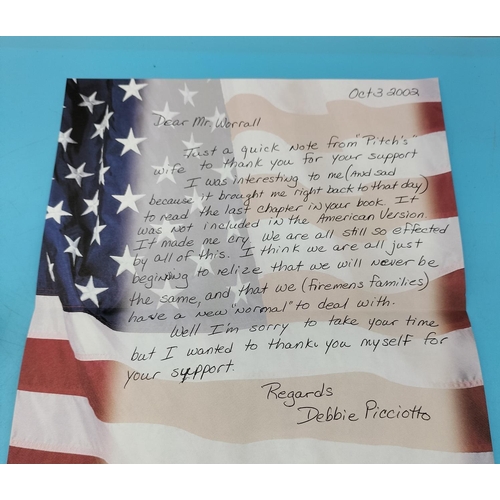 Oct 3 2002
Dear Mr. Worrall
Just a quick note from "Pitch's"
wife to thank you for your support
I was interesting to me (And sad
because it brought me right back to that day)
to read the last chapter in your book. It
was not included in the American Version
It made me cry. We are all still so effected
by all of this. I think we are all just
begining to relize that we will never be
the same, and that we (firemens families)
have a new "normal" to deal with.
Well I'm sorry to take your time
but I wanted to thank you myself for
your support.
Regards
Debbie Picciotto